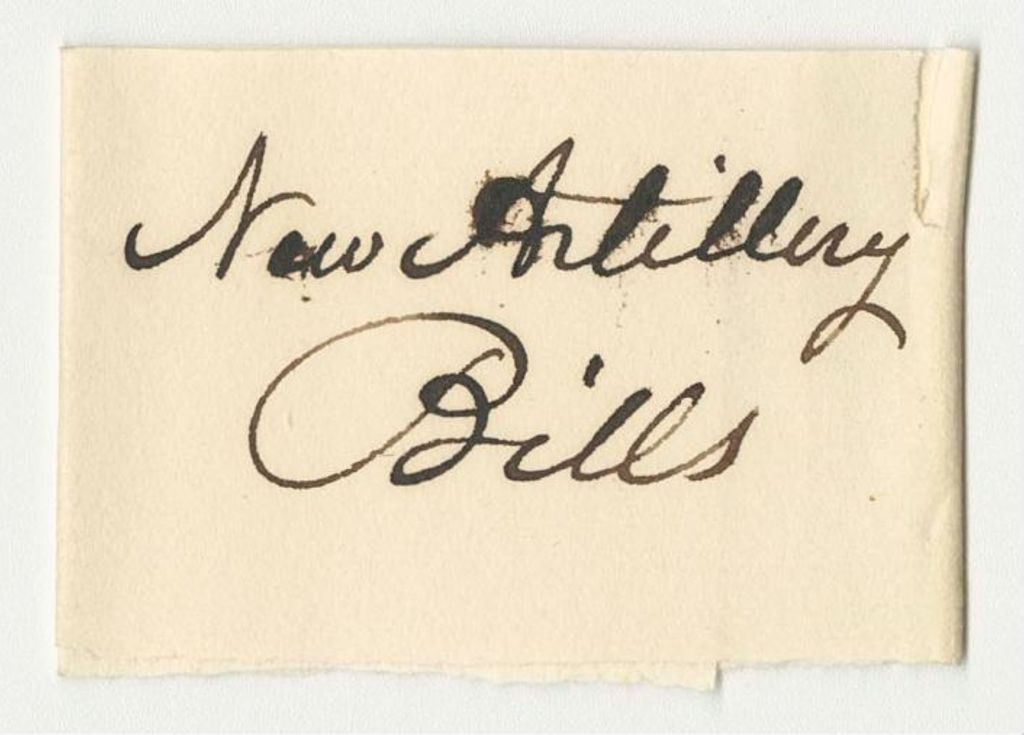 New Artillery
Bills